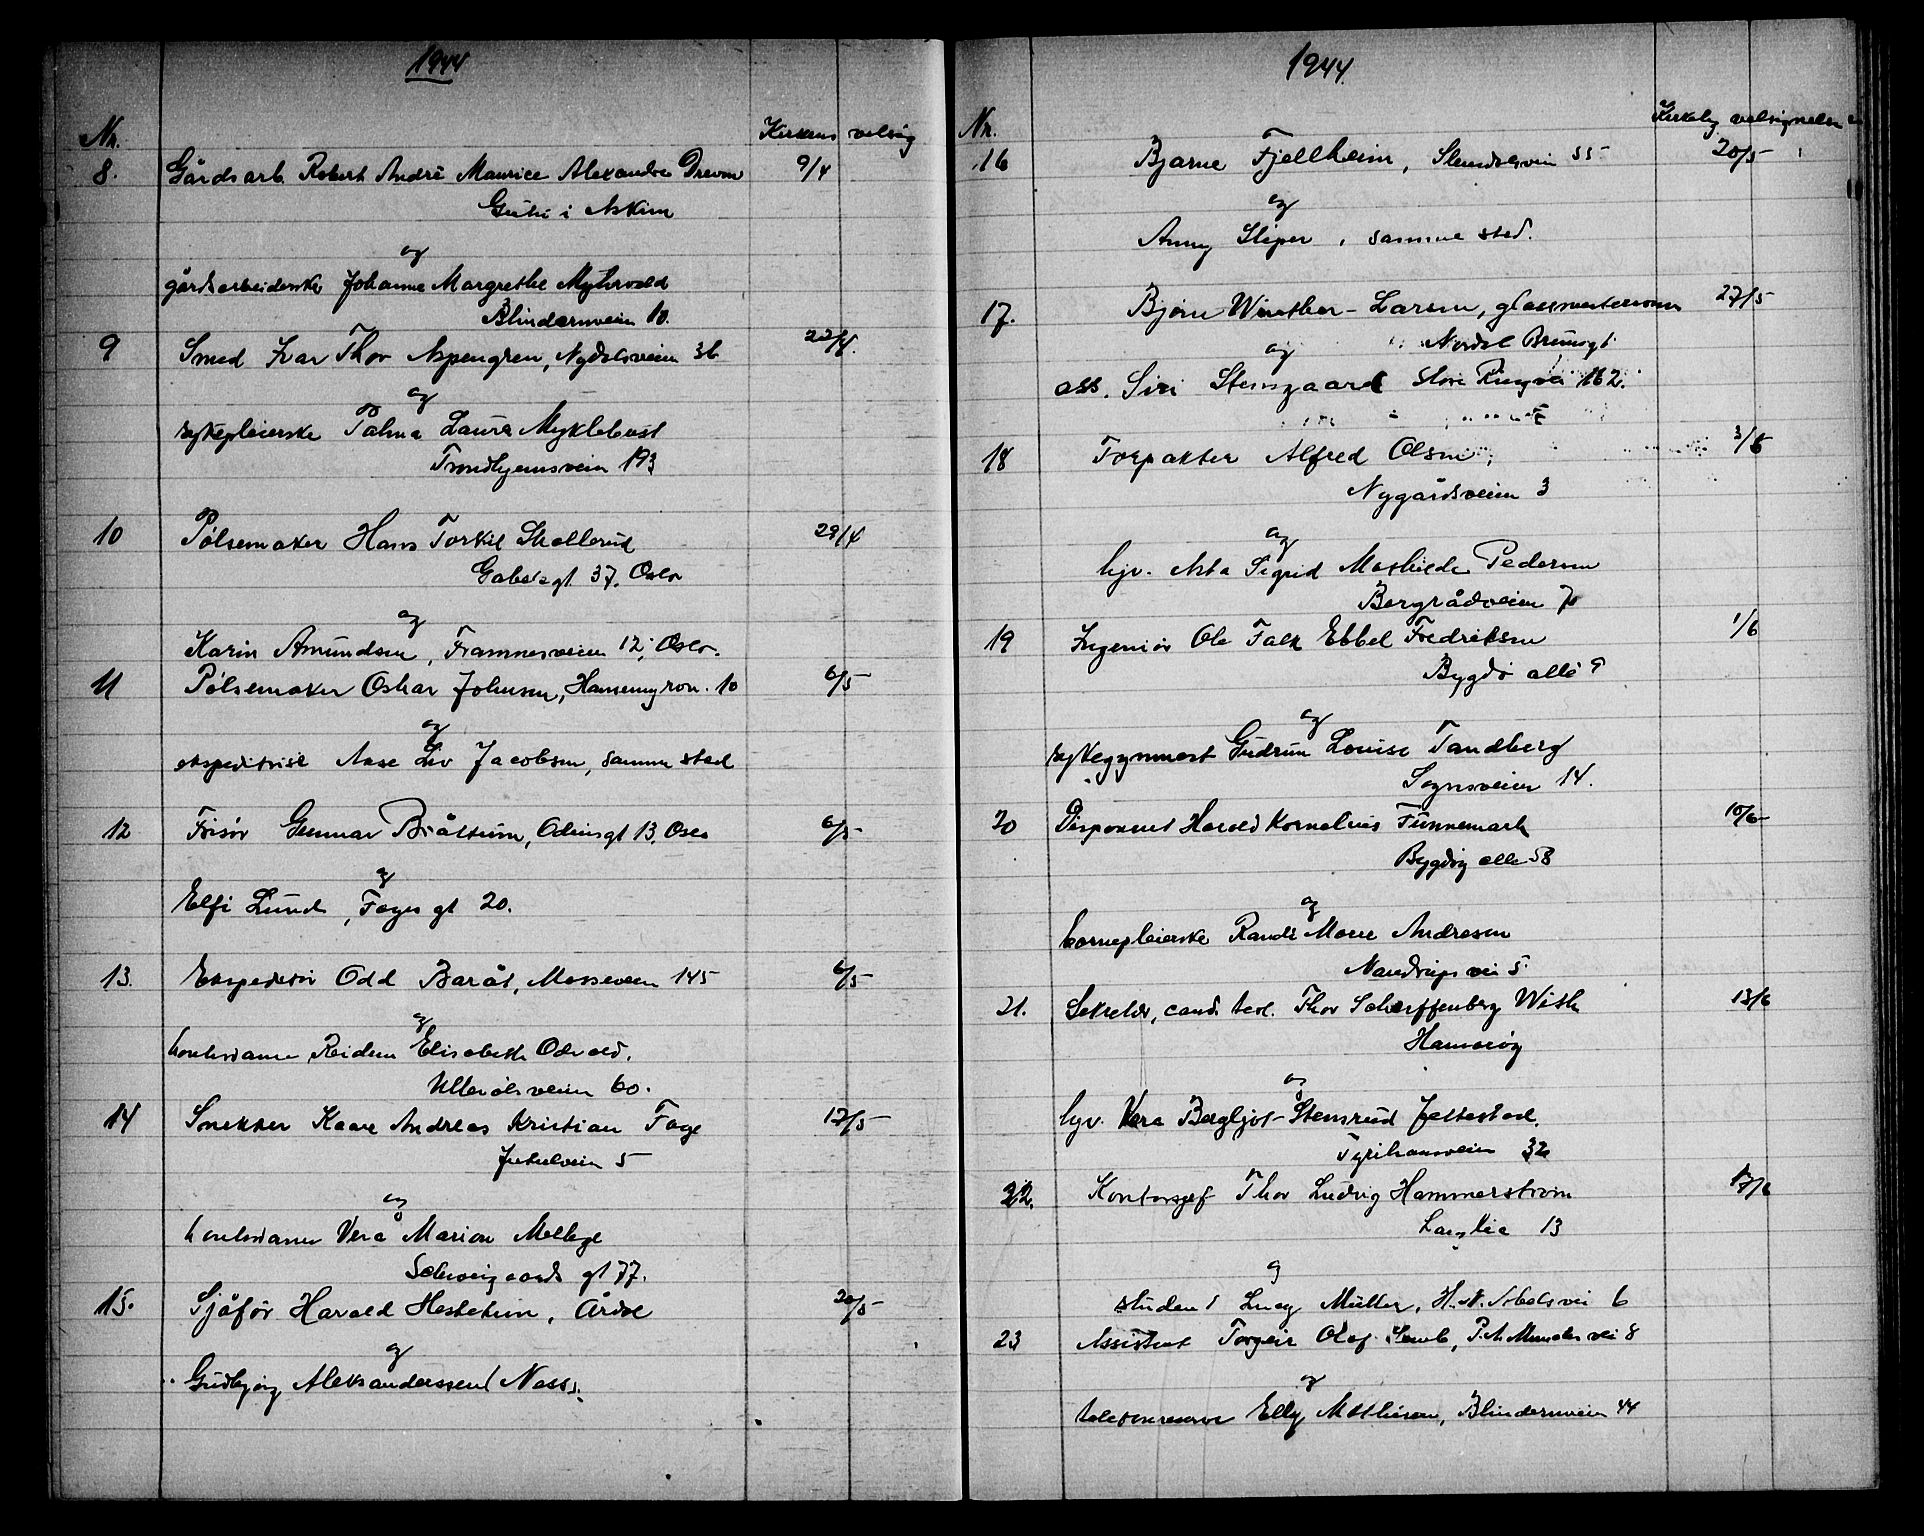 1944
Nr. Kirkens velsig
8. Gårdsarb. Robert André Maurice Alexandre Drevon 9/4
i Askim
og
gårdsarbeiderske Johanne Margrethe Myhrvold
Blindernveien 10.
9 Smed Ivar Thor Aspengren, Nydalsveien 36 22/4.
og
sykepleierske Palma Laura Myklebust
Trondhjemsveien 193
10 Pølsemaker Hans Torkil Skollerud 29/4
Gabelsgt 37. Oslo
og
Karin Amundsen, Framnesveien 12, Oslo.
11 Pølsemaker Oskar Johnsen, Hansemyrvn. 10 6/5
og
ekspeditrise Aase Liv Jacobsen, samme sted
12 Frisør Gunnar Bråttum, Odinsgt 13. Oslo 6/5
og
Elfi Lund, Fagergt 20.
13. Ekspeditør Odd Barås, Mosseveien 145 6/5
og
kontordame Reidun Elisabeth Odvold.
Ullevålsveien 60.
14 Snekker Kaare Andreas Kristian Fage 13/5
Jutulveien 5
og
kontordame Vera Marion Mellege
Schweigaards gt 77.
15. Sjåfør Harald Hesteteun, Årdal 20/5
og
Gudbjørg Aleksanderssen (Ness).
1944.
Nr. Kirkelig velsignelse
16 Bjarne Fjellheim, Slemdalsvein 55 20/5
og
Anny Sliper, samme sted.
17. Bjørn Winther-Larsen, glassmestersvenn 27/5
Nordal Brunsgt
og
ass. Siri Stensgaard Store Ringvei 162.
18 Forpakter Alfred Olsen, 3/6
Nygårdsveien 3
og
hjv. Asta Sigrid Mathilde Pedersen
Bergrådveien 7
19 Ingeniør Ole Falk Ebbel Fredriksen 1/6
Bygdø allé 9
og
sykegymnast Gudrun Louise Tandberg
Sognsveien 14.
20 Disponent Harald Kornelius Funnemark 10/6
Bygdøy alle 58
og
barnepleierske Randi Marie Andresen
Nandrups vei 5.
21. Sekretær, cand. teol. Thor Scharffenberg With 13/6
Hamarøy
og
hjv. Vera Bergljot Stensrud Jellestad.
Tyrihansveien 32
22. Kontorsjef Thor Ludvig Hammerstrøm 17/6
Langlia 13
og
student Lucy Müller, H. N. Abelsvei 6
23 Assistent Torgeir Olaf Lamb, P. A. Munchs vei 8
og
telefonreserve Elly Mathisen, Blindernveien 44